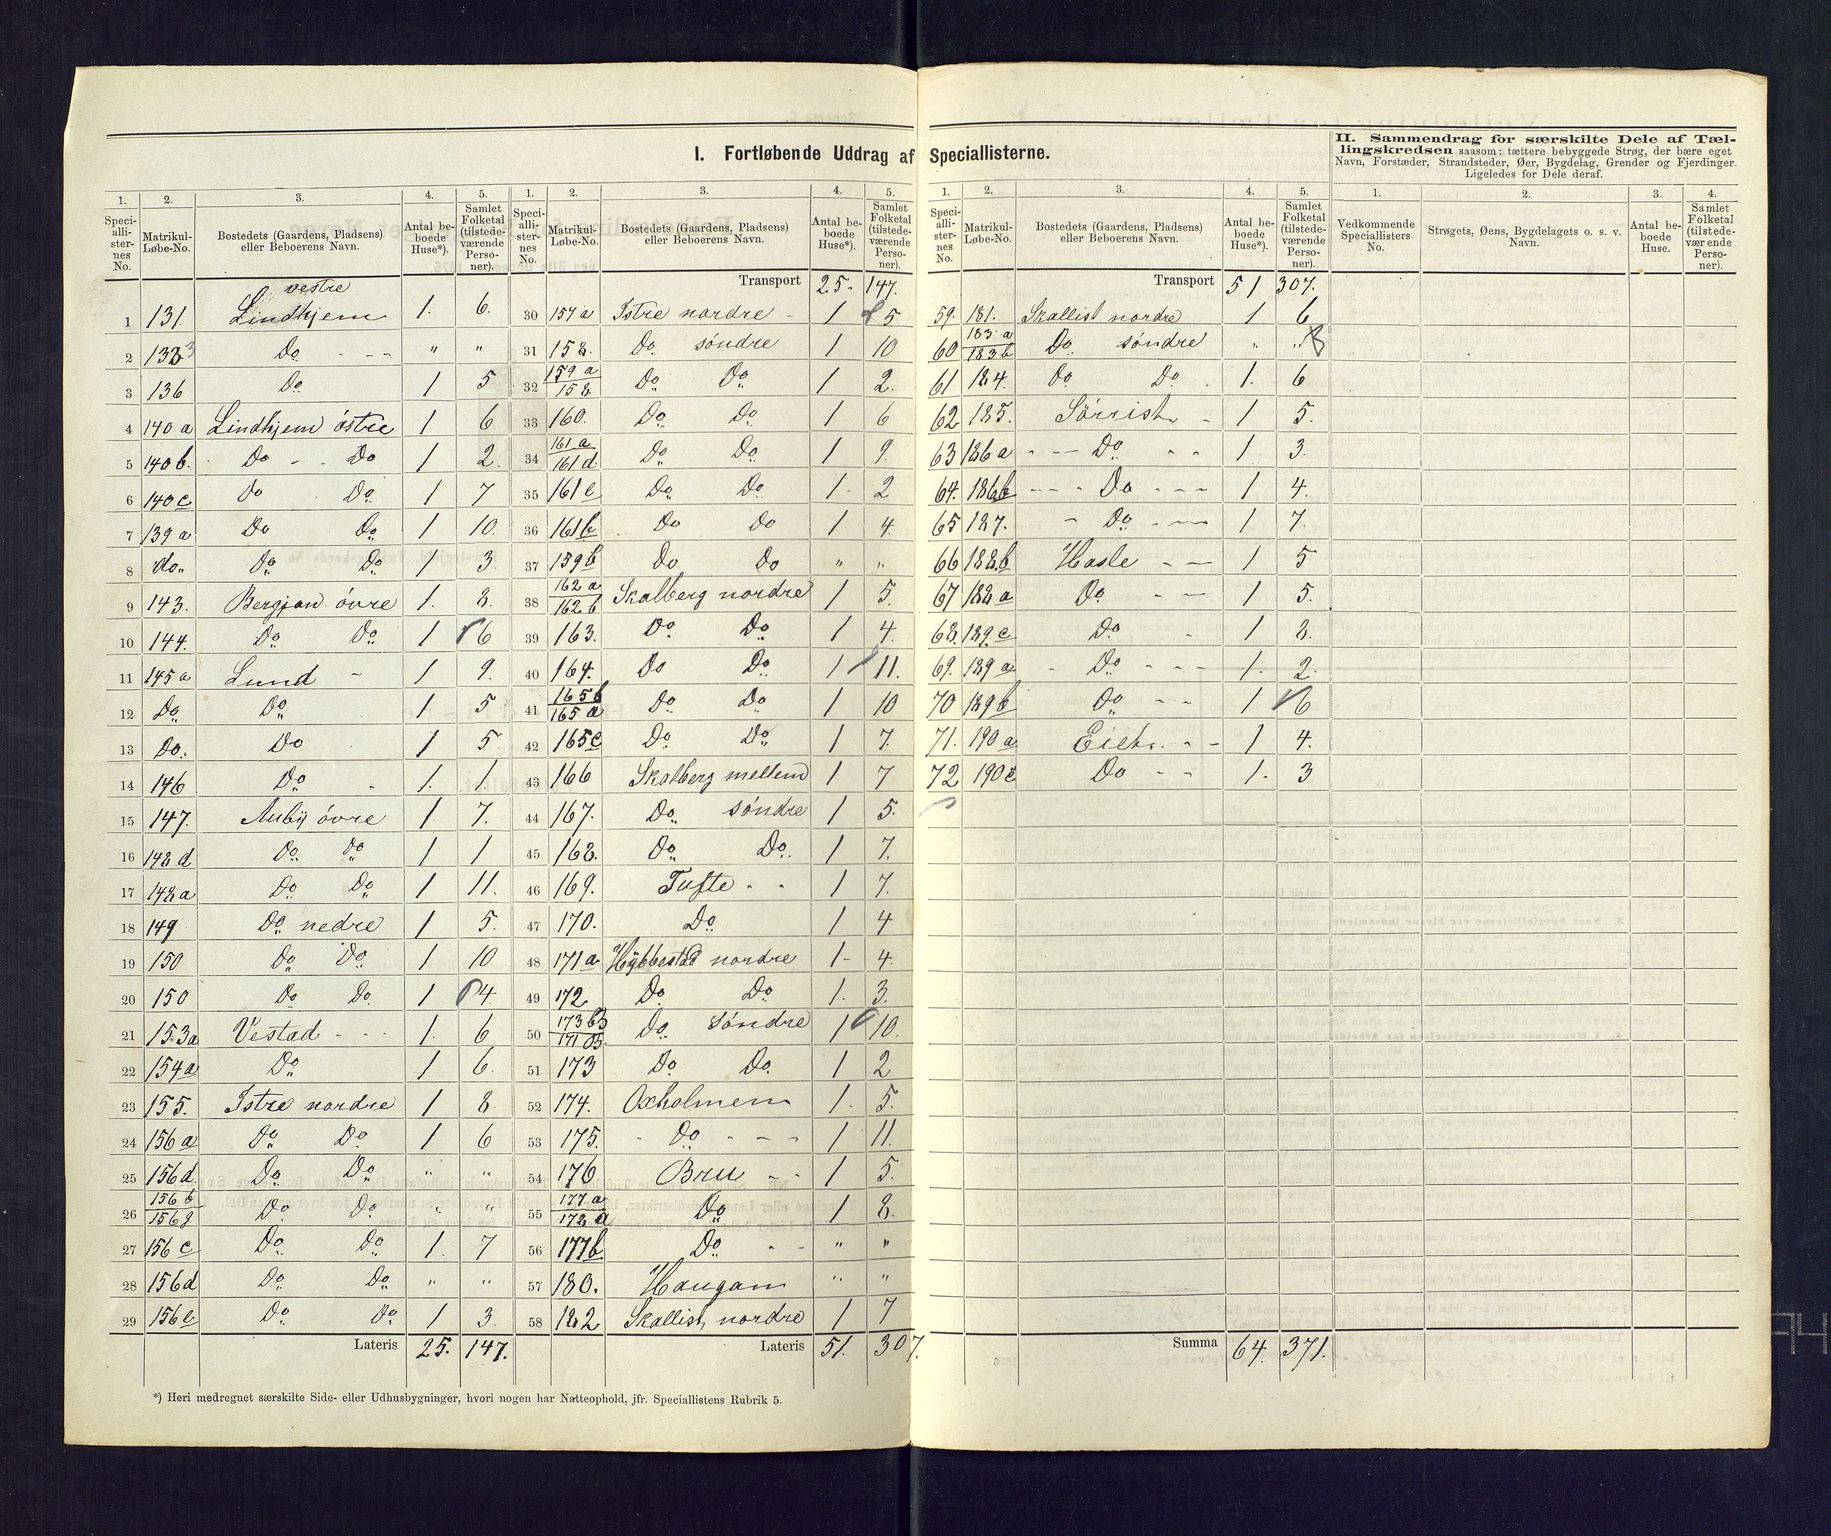 I. Fortløbende Uddrag af Speciallisterne.
II. Sammendrag for særskilte Dele af Tæl-
lingskredsen saasom: tættere bebyggede Strøg, der bære eget
Navn, Forstæder, Strandsteder, Øer, Bygdelag, Grender og Fjerdinger.
Ligeledes for Dele deraf.
1. 2. 3. 4. 5.
Speciallisternes No. Matrikul-Løbe-No. Bostedets (Gaardens, Pladsens) eller Beboerens Navn. Antal beboede Huse*). Samlet Folketal (tilstedeværende Personer).
vestre
1 131 Lindhjem 1. 6.
2 133 Do - -- " "
3 136 Do 1 5
4 140 a Lindhjem östre 1 6
5 140 b. Do - - Do 1 2.
6 140 c Do Do 1 7
7 139 a Do Do 1 10.
8 do Do Do 1 3.
9 143. Bergjan övre 1. 8.
10 144. Do Do 1 6
11 145 a Lund - 1 9.
12 Do Do 1 5
13 Do. Do 1 5.
14 146 Do 1. 1.
15 147. Auby övre 1 7.
16 148 d Do Do 1 1
17 148 a Do Do 1 11.
18 149 Do nedre 1 5.
19 150 Do Do 1 10
20 150 Do Do. 1 4.
21 153 a Vestad - - - 1. 6
22 154 a Do 1 6.
23 155. Istre nordre 1 8
24 156 a Do Do 1 6
25 156 d. Do Do " "
26 156 b 156 g Do Do " "
27 156 c Do Do 1. 7
28 156 d Do Do " "
29 156 e Do Do 1 3.
Lateris 25. 147.
1. 2. 3. 4. 5.
Speciallisternes No. Matrikul-Løbe-No. Bostedets (Gaardens, Pladsens) eller Beboerens Navn. Antal beboede Huse*). Samlet Folketal (tilstedeværende Personer).
Transport 25- 147.
30 157 a Istre nordre - 1 5
31 158. Do söndre 1 10
32 159 a 158 Do Do 1 2.
33 160. Do Do 1 6
34 161 a 161 d Do Do 1 9.
35 161 c Do Do 1- 2
36 161 b Do Do 1 4.
37 159 b Do Do " "
38 162 a 162 b Skalberg nordre 1 5.
39 163. Do Do 1 4.
40 164. Do Do 1 11.
41 165 b 165 a Do Do 1 10
42 165 c Do Do 1 7.
43 166 Skalberg mellem 1 7
44 167. Do söndre 1 5.
45 168. Do Do. 1 7.
46 169. Tufte - - 1 7.
47 170. Do 1 4
48 171 a Hybbestad nordre 1- 4.
49 172 Do Do 1. 3.
50 Do Söndre 1 10.
51 173 Do Do 1 2
52 174. Oxholmen 1. 5.
53 175. - Do - - - 1 11.
54 176 Bru - - 1 5.
55 177 a 178 a Do 1 8.
56 177 b Do - - " "
57 180. Haugan " "
58 182 Skallist nordre 1 7
Lateris 51. 307.
1. 2. 3. 4. 5.
Speciallisternes No. Matrikul-Løbe-No. Bostedets (Gaardens, Pladsens) eller Beboerens Navn. Antal beboede Huse*). Samlet Folketal (tilstedeværende Personer).
Transport 51 307.
59. 181. Skallist nordre 1 6
60 183 a 183 b Do söndre " "
61 184. Do Do. 1. 6
62 185. Sörrist - 1 5.
63 186 a - - Do " " 1 3.
64. 186 b - - - Do - - - 1 4.
65 187. - Do - - - 1 7.
66 188 b Hasle - - 1 5
67 188 a Do - - 1 5.
68 189 c Do - 1 8.
69. 189 a - Do - - - 1. 2.
70 189 b Do - - 1 6
71. 190 a Eiek - - 1 4.
72 190 c Do - - 1. 3
Summa 64. 371.
1. 2. 3. 4.
Vedkommende Speciallisters No. Strøgets, Øens, Bygdelagets o. s. v. Navn. Antal beboede Huse. Samlet Folketal (tilstedeværende Personer).
*) Heri medregnet særskilte Side- eller Udhusbygninger, hvori nogen har Natteophold, jfr. Speciallistens Rubrik 5.